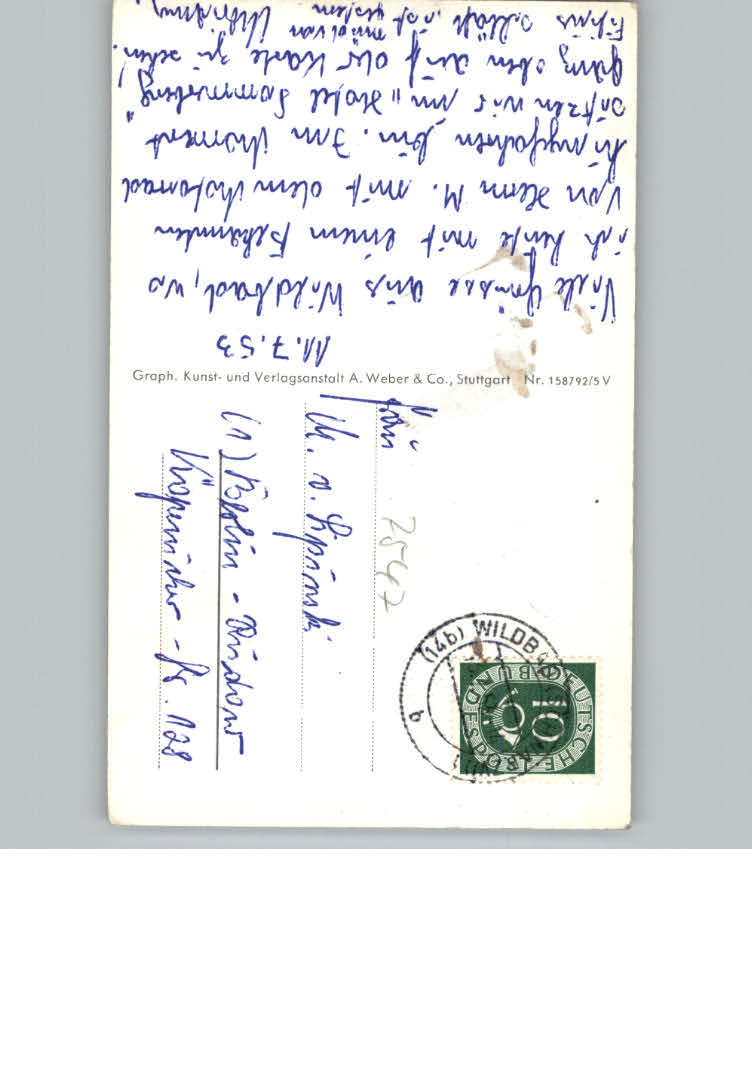 11.7.53
Viele Grüsse aus Wildbad, wo
ich heute mit einem Bekannten
von Herrn M. mit dem Motorrad
hingefahren bin. Im Moment
sitzen wir im „Hotel Sommerberg"
ganz oben auf der Karte zu sehen!
schläft, ist müde von
gestern
Graph. Kunst- und Verlagsanstalt A. Weber & Co., Stuttgart Nr. 158792/5 V
Frau
M. v. Lipinski
(1) Berlin - Rudow
Köpenicker - Str. 128
7547
(14b) WILDBAD
b
DEUTSCHE BUNDESPOST
10